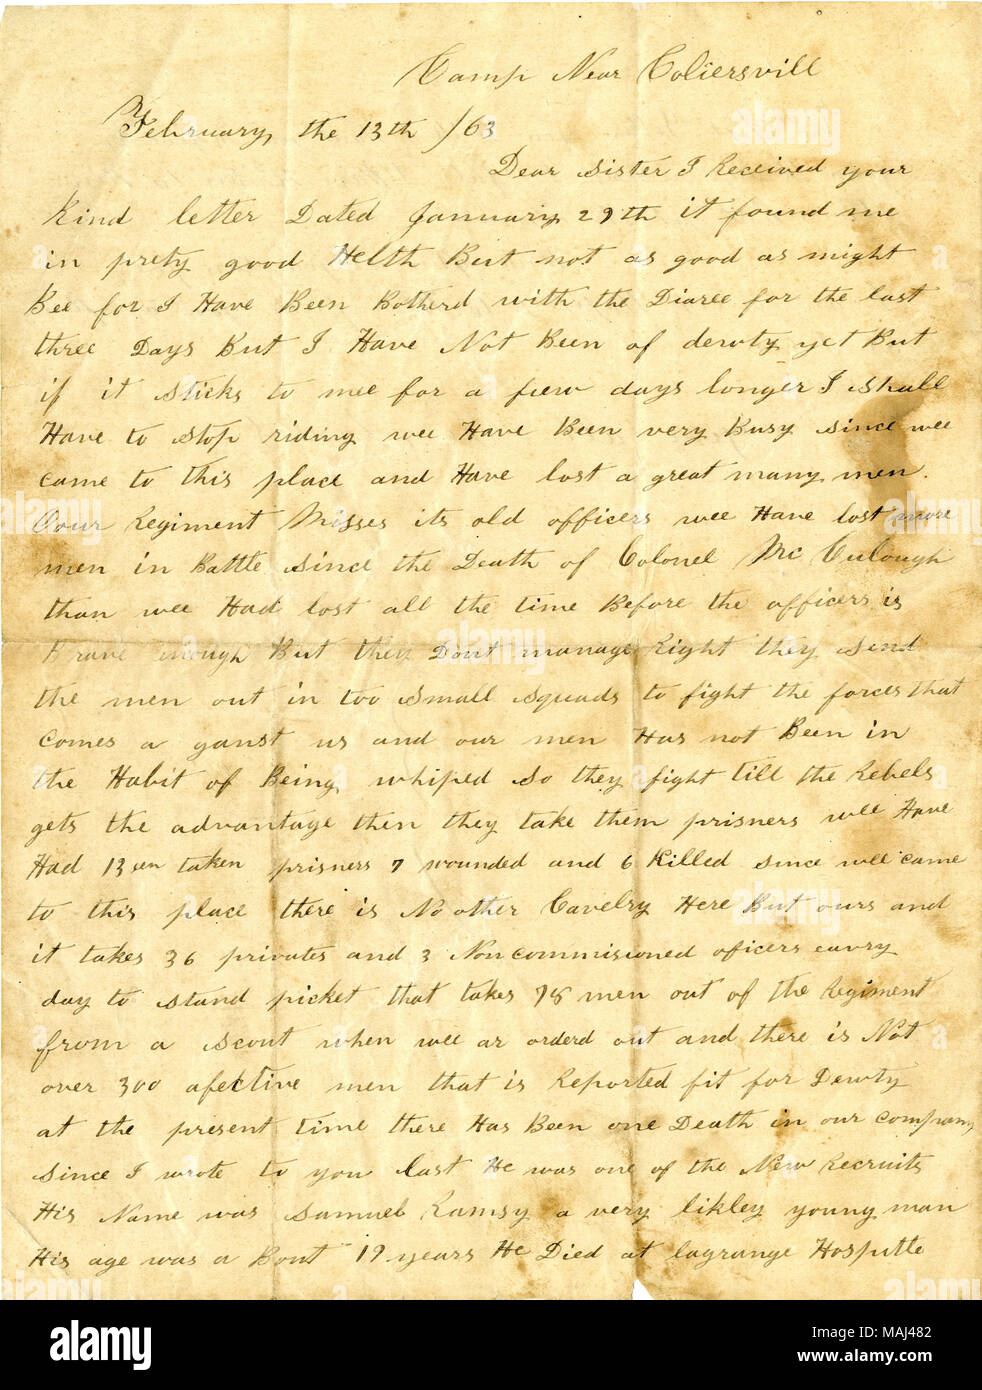 Camp Near Coliersvill
February, the 13th /63
Dear Sister I Received your
kind letter Dated January 29th it found me
in prety good Helth But not as good as might
Bee for I Have Been Botherd with the Diaree for the last
three Days But I Have Not Been of dewty yet But
if it sticks to mee for a few days longer I shall
Have to stop riding wee Have Been very Busy since wee
came to this place and Have lost a great many men.
Oour Regiment Misses its old officers wee Have lost more
men in Battle since the Death of Colonel Mc Culough
than wee Had lost all the time Before the officers is
Brave enough But they Dont manage Right they send
the men out in too small squads to fight the forces that
comes a ganst us and our men Has not Been in
the Habit of Being whiped so they fight till the Rebels
gets the advantage then they take them prisners wee Have
Had 13een taken prisners 7 wounded and 6 Killed since wee came
to this place there is No other Cavelry Here But ours and
it takes 36 privates and 3 Noncommisioned oficers eavry
day to stand picket that takes 78 men out of the Regiment
from a scout when wee ar orderd out and there is Not
over 300 afective men that is Reported fit for Dewty
at the present time there Has Been one Death in our company
since I wrote to you last He was one of the New Recruits
His Name was Samuel Ramsy a very likley young man
His age was a Bout 19 years He Died at lagrange Hospitle
alamy
Image ID: MAJ482
www.alamy.com